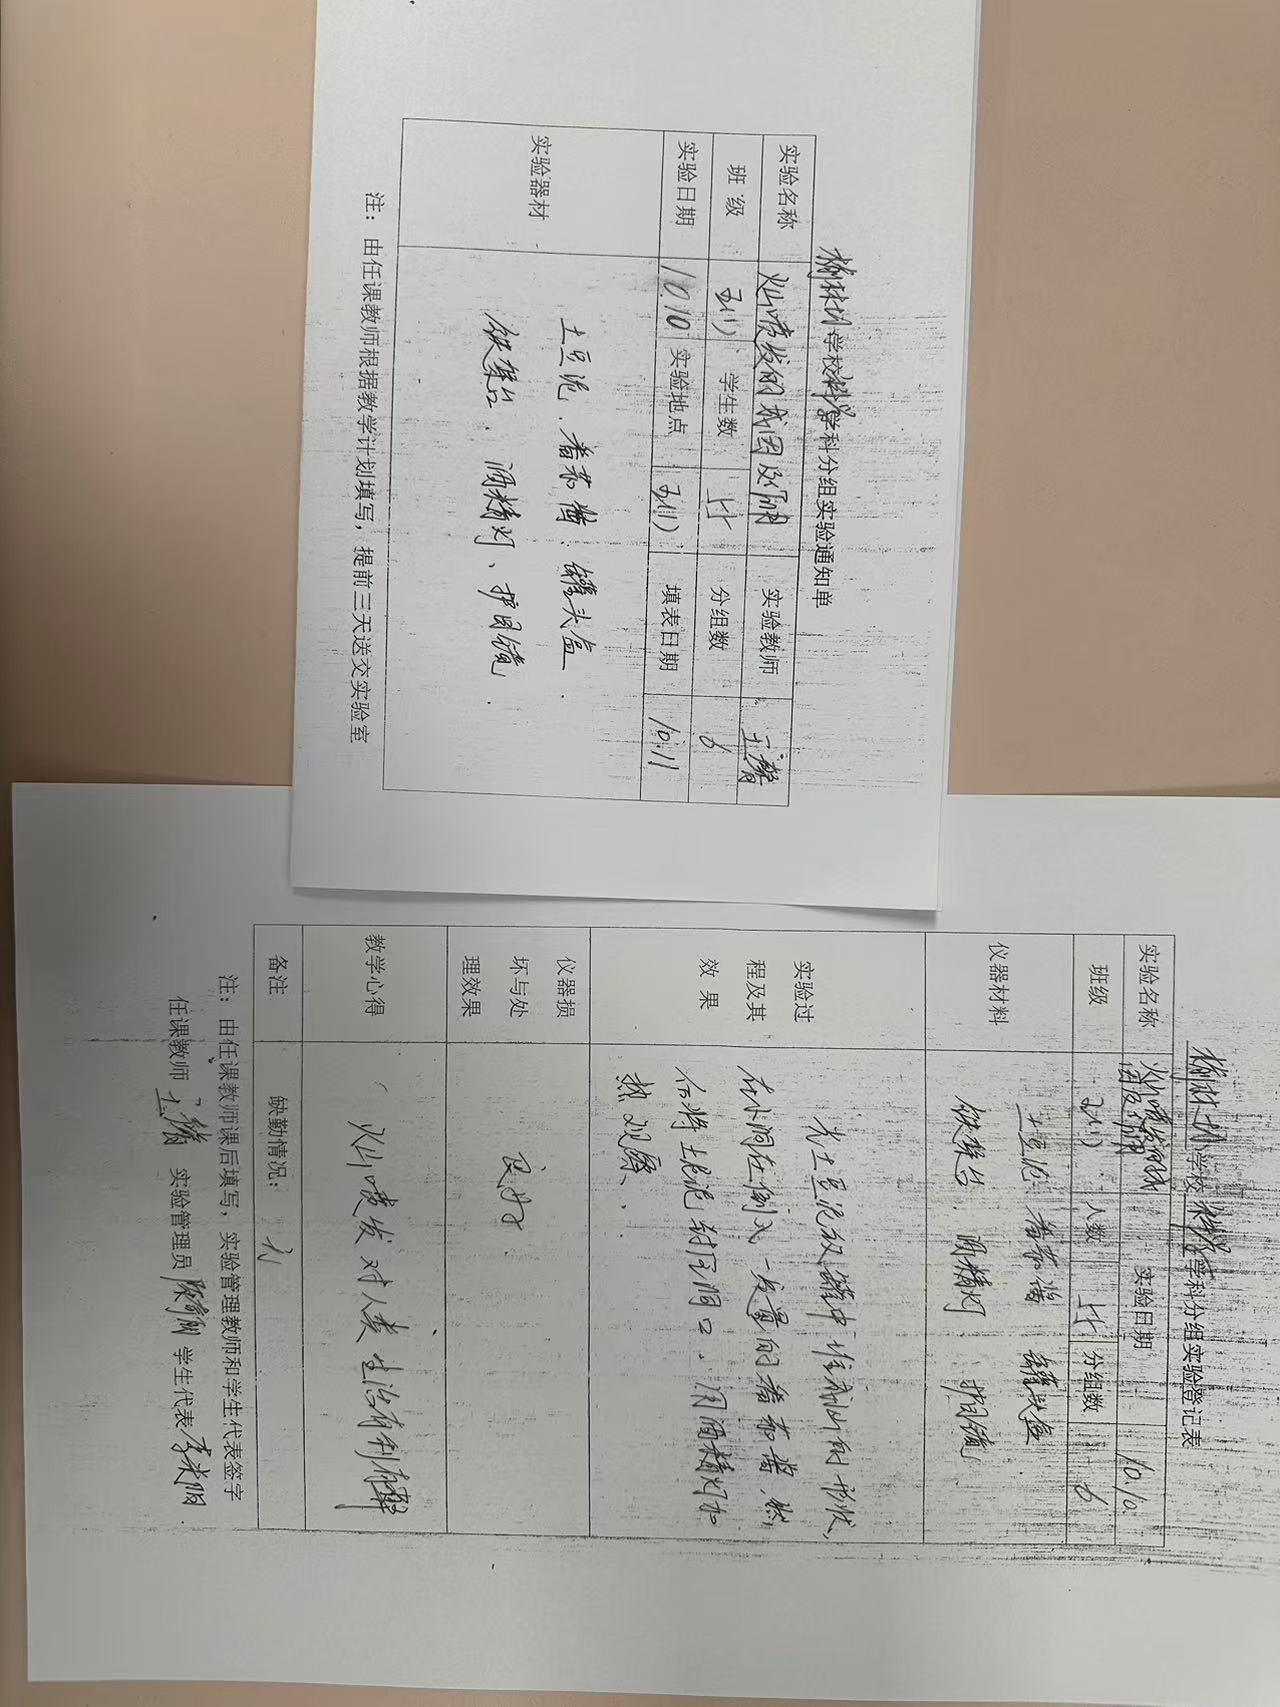 榆林圳学校科学学科分组实验通知单
实验名称 火山喷发的成因及作用 实验教师 王
班 级 五(1) 学生数 分组数 6
实验日期 10.10 实验地点 五(1) 填表日期 10.11
实验器材
土豆泥、番茄酱、罐头盒.
铁架台、酒精灯、护目镜.
注：由任课教师根据教学计划填写，提前三天送交实验室
学校科学学科分组实验登记表
实验名称 火山喷发的成因及作用 实验日期 10.10.
班级 五(1) 人数 分组数 6
仪器材料
土豆泥 番茄酱 罐头盒
铁架台. 酒精灯 护目镜.
实验过程及其效 果
先土豆泥放罐中堆成山的形状,
在小洞在倒入一定量的番茄酱,然
后将土豆泥封住洞口。用酒精灯加
热观察、
仪器损坏与处理效果 良好
教学心得 火山喷发对人类生活有利有弊
备注 缺勤情况：无
注：由任课教师课后填写，实验管理教师和学生代表签字
任课教师 王 实验管理员 陈 学生代表 李